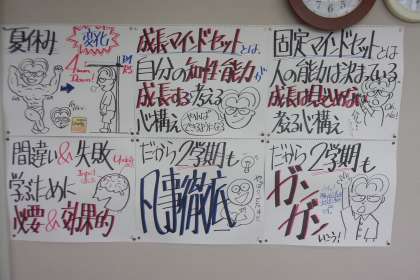 夏休み
変化
成長マインドセットとは、
自分の知性・能力が
成長すると考える
心構え
固定マインドセットとは
人の能力は決まっている
考える心構え
間違い&失敗
学ぶために
必要&効果的
だから2学期も
凡事徹底
だから2学期も
ガン
ガン
いこう!